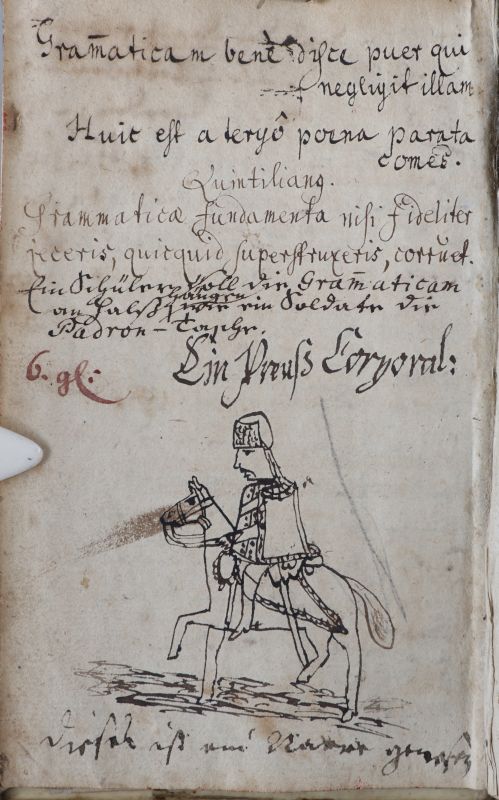 Gram̄aticam benè disce puer qui
negligit illam
Huic est a tergô poena parata
comes.
Quintilianq.
Grammaticæ fundamenta nisi fideliter
jeceris, quicquid superstruxeris, corruet.
Ein Schüler soll die Gram̄aticam
an Halß hängen wie ein Soldate die
Padron-Tasche.
6. gl:
Ein Preuß Corporal:
dieser ist ein Narre gewesen